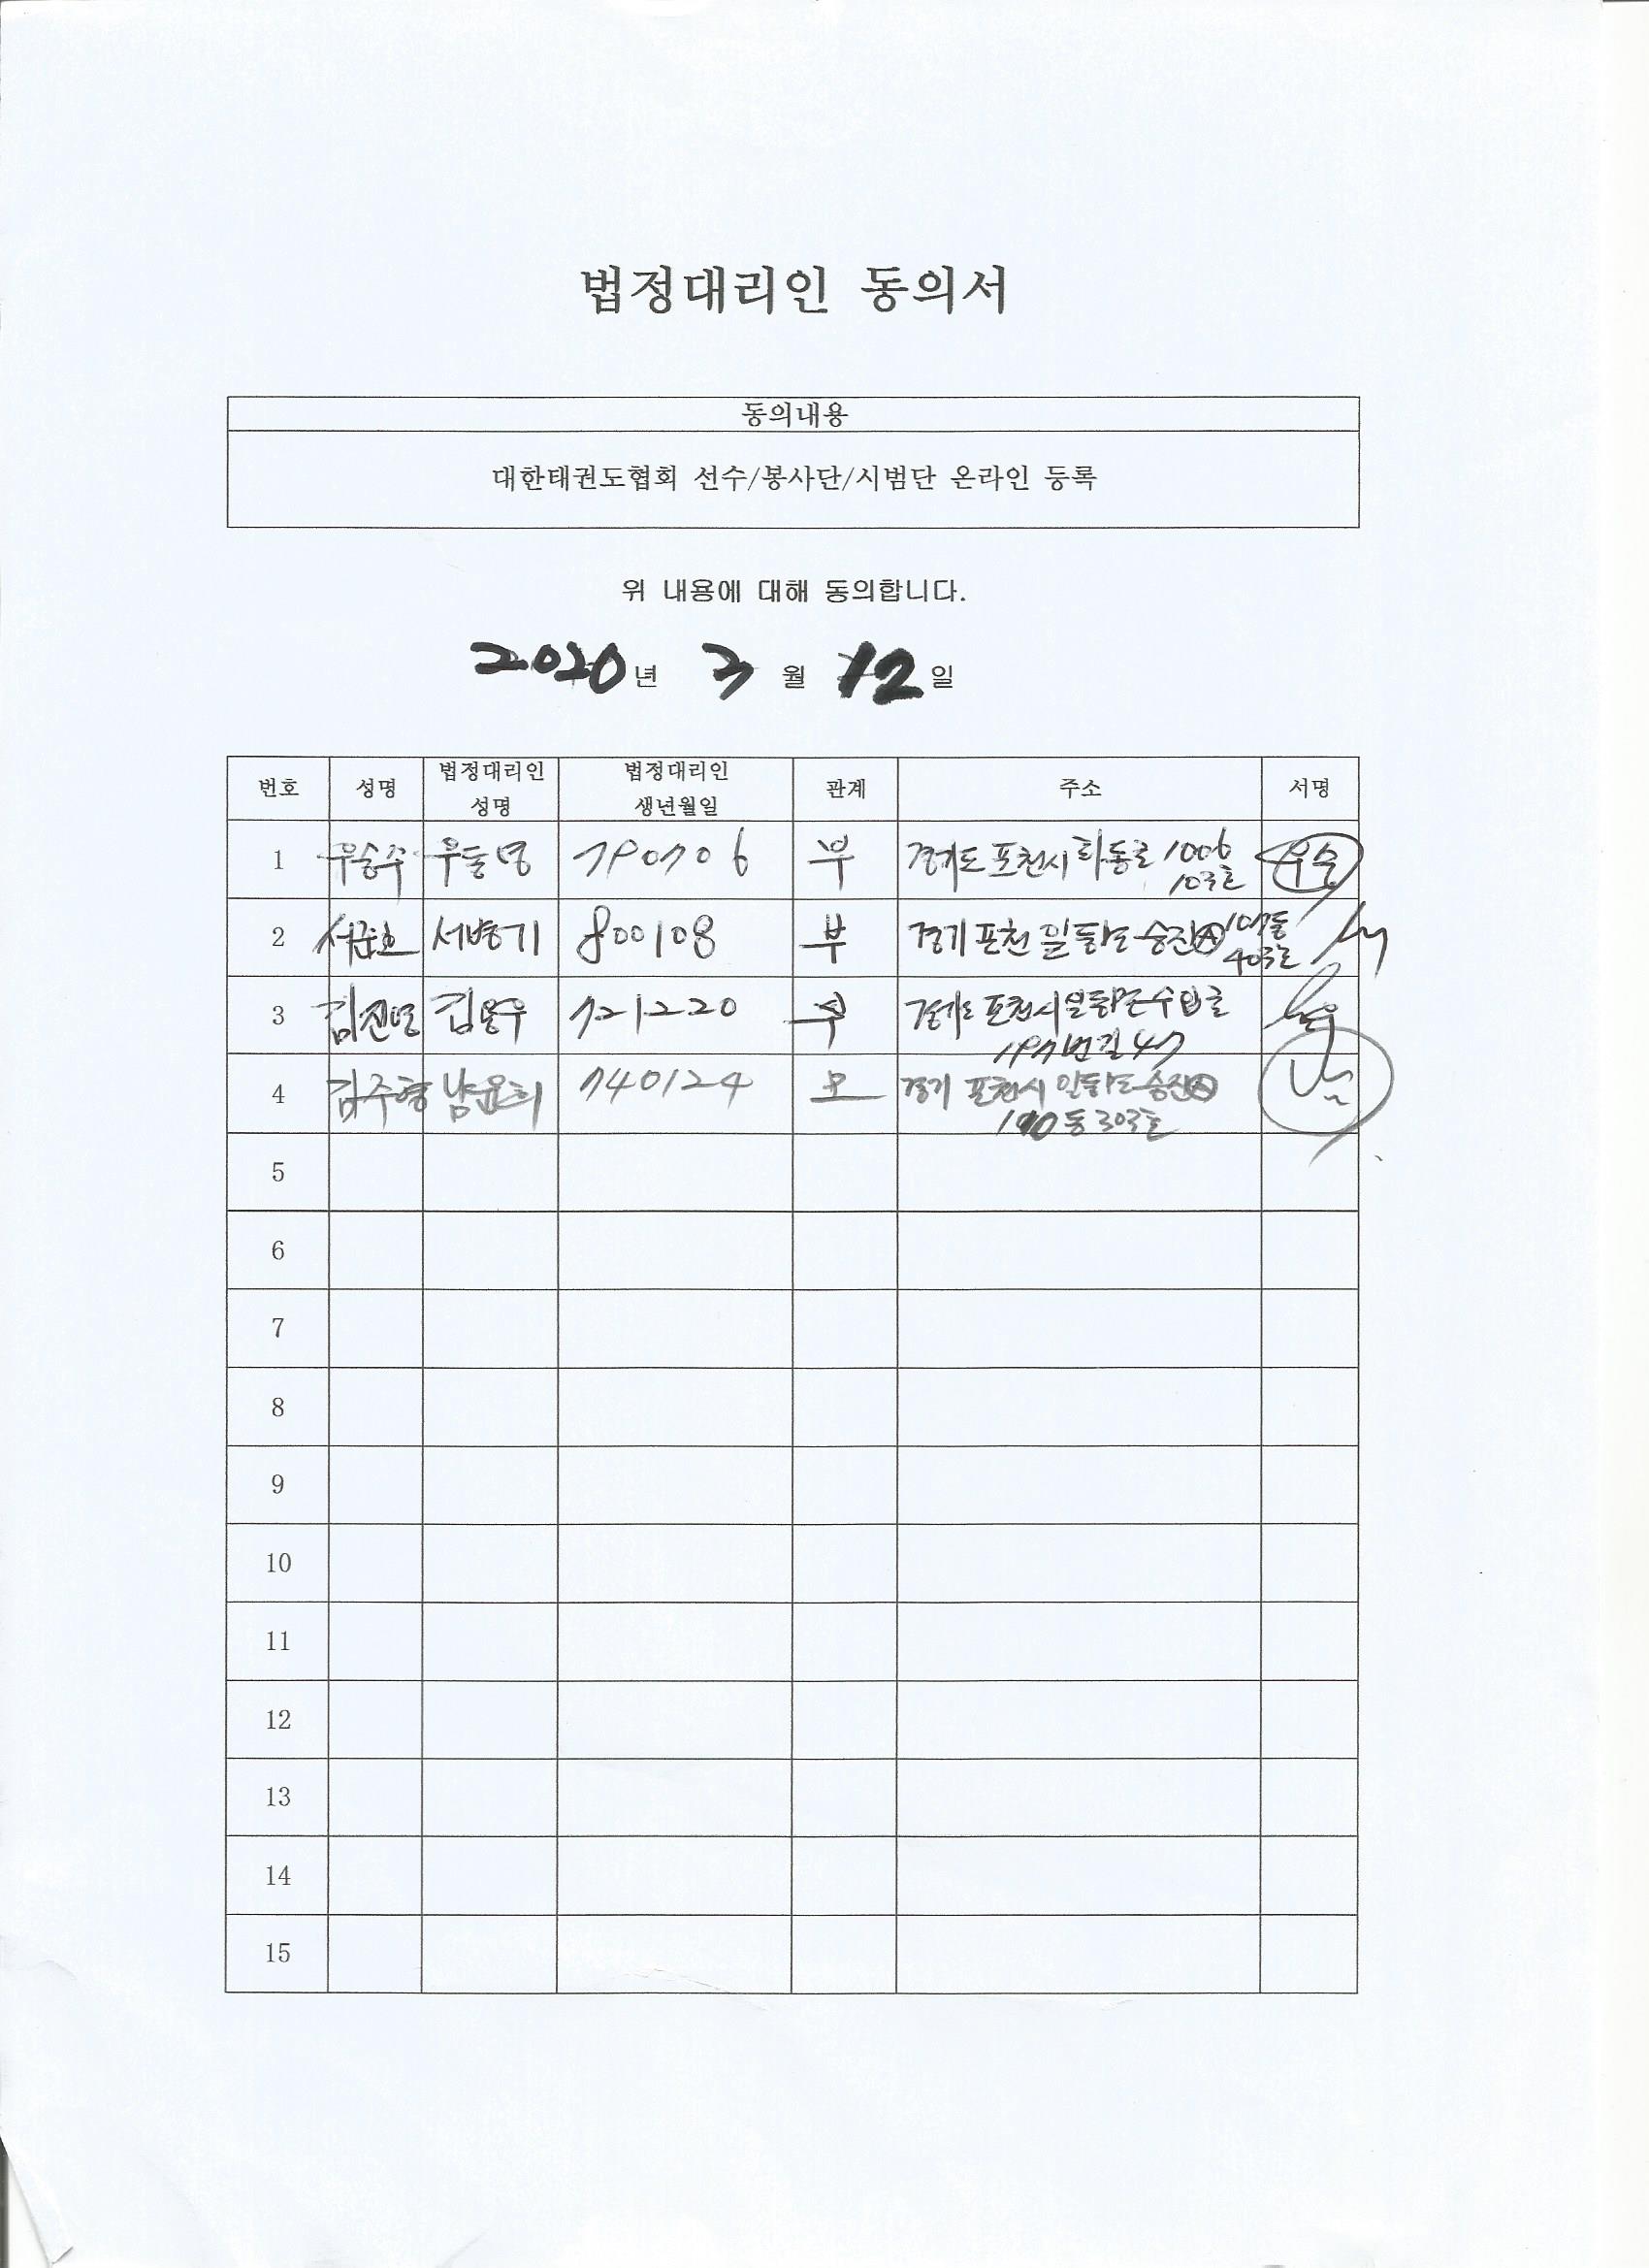 법정대리인 동의서
동의내용
대한태권도협회 선수/봉사단/시범단 온라인 등록
위 내용에 대해 동의합니다.
2020년 3 월 12 일
번호 성명 법정대리인 성명 법정대리인 생년월일 관계 주소 서명
1 우승수 790706 부 경기도 포천시 화동로 1006
103호
2 서병기 800108 부 경기 포천 일동면 승진Ⓐ 107동
403호
3 721220 부 경기도 포천시 일동면 수입로
197번길 47
4 김주형 남윤희 740124 모 경기 포천시 일동면 승진Ⓐ
110동 303호
5
6
7
8
9
10
11
12
13
14
15